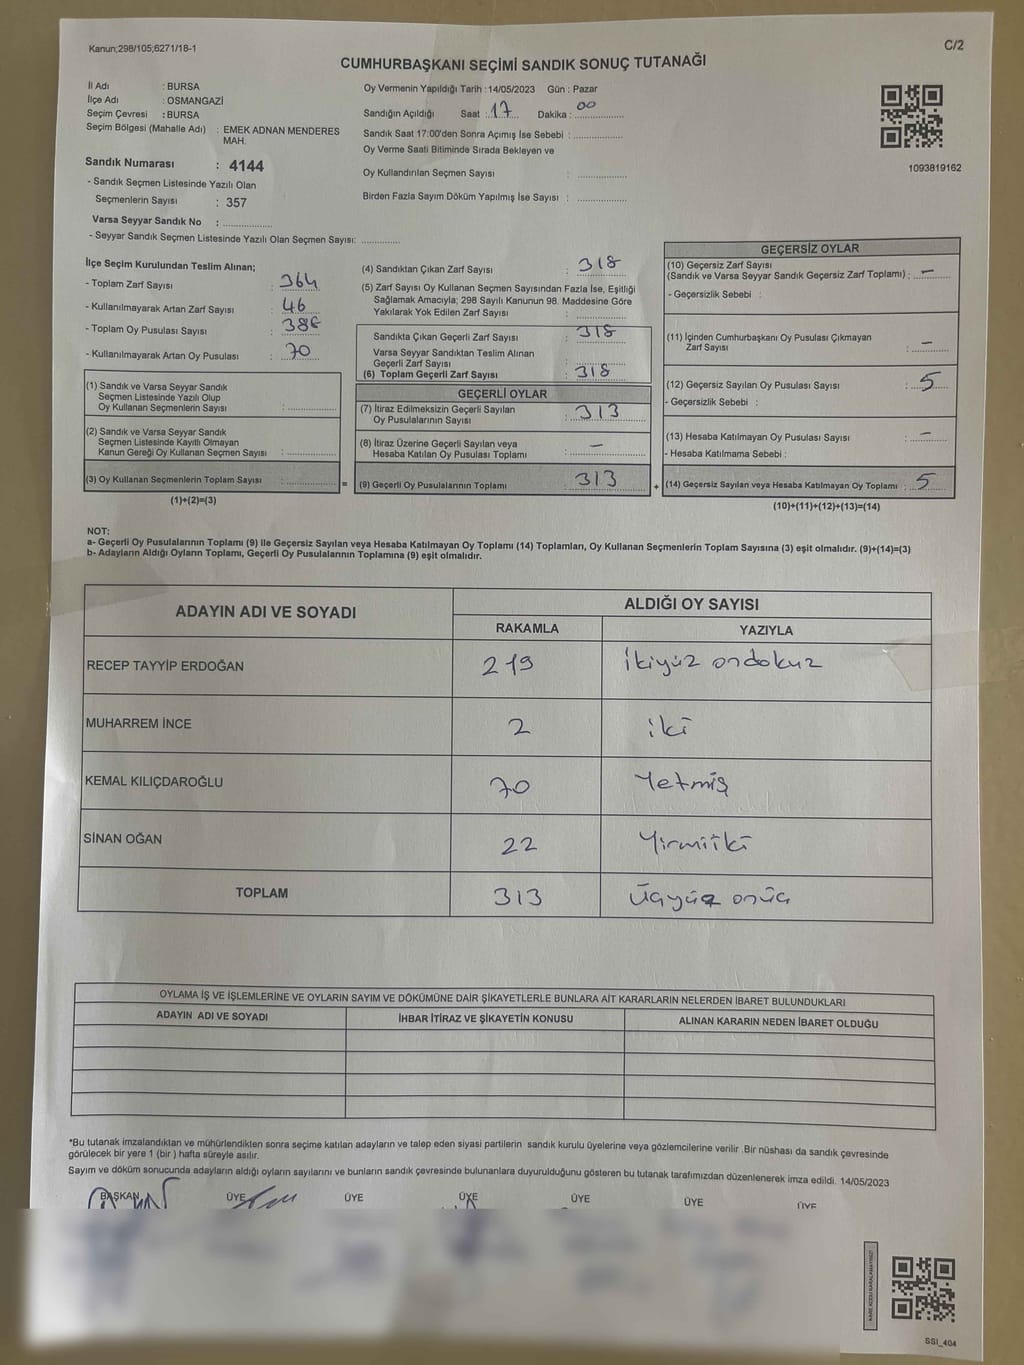 Kanun;298/105;6271/18-1
C/2
CUMHURBAŞKANI SEÇİMİ SANDIK SONUÇ TUTANAĞI
İl Adı : BURSA
İlçe Adı : OSMANGAZİ
Seçim Çevresi : BURSA
Seçim Bölgesi (Mahalle Adı) : EMEK ADNAN MENDERES MAH.
Sandık Numarası : 4144
- Sandık Seçmen Listesinde Yazılı Olan
Seçmenlerin Sayısı : 357
Varsa Seyyar Sandık No : ..............
- Seyyar Sandık Seçmen Listesinde Yazılı Olan Seçmen Sayısı: ............
Oy Vermenin Yapıldığı Tarih :14/05/2023 Gün : Pazar
Sandığın Açıldığı Saat : 17 Dakika : 00
Sandık Saat 17:00'den Sonra Açımış İse Sebebi : ..............
Oy Verme Saati Bitiminde Sırada Bekleyen ve
Oy Kullandırılan Seçmen Sayısı : ..............
Birden Fazla Sayım Döküm Yapılmış İse Sayısı : ..............
1093819162
İlçe Seçim Kurulundan Teslim Alınan;
- Toplam Zarf Sayısı : 364
- Kullanılmayarak Artan Zarf Sayısı : 46
- Toplam Oy Pusulası Sayısı : 386
- Kullanılmayarak Artan Oy Pusulası : 70
(1) Sandık ve Varsa Seyyar Sandık
Seçmen Listesinde Yazılı Olup
Oy Kullanan Seçmenlerin Sayısı : ..............
(2) Sandık ve Varsa Seyyar Sandık
Seçmen Listesinde Kayıtlı Olmayan
Kanun Gereği Oy Kullanan Seçmen Sayısı : ..............
(3) Oy Kullanan Seçmenlerin Toplam Sayısı : .............. =
(1)+(2)=(3)
(4) Sandıktan Çıkan Zarf Sayısı : 318
(5) Zarf Sayısı Oy Kullanan Seçmen Sayısından Fazla İse, Eşitliği
Sağlamak Amacıyla; 298 Sayılı Kanunun 98. Maddesine Göre
Yakılarak Yok Edilen Zarf Sayısı : ..............
Sandıkta Çıkan Geçerli Zarf Sayısı : 318
Varsa Seyyar Sandıktan Teslim Alınan
Geçerli Zarf Sayısı : ..............
(6) Toplam Geçerli Zarf Sayısı : 318
GEÇERLİ OYLAR
(7) İtiraz Edilmeksizin Geçerli Sayılan
Oy Pusulalarının Sayısı : 313
(8) İtiraz Üzerine Geçerli Sayılan veya
Hesaba Katılan Oy Pusulası Toplamı : —
(9) Geçerli Oy Pusulalarının Toplamı : 313 +
GEÇERSİZ OYLAR
(10) Geçersiz Zarf Sayısı
(Sandık ve Varsa Seyyar Sandık Geçersiz Zarf Toplamı) : —
- Geçersizlik Sebebi :
(11) İçinden Cumhurbaşkanı Oy Pusulası Çıkmayan
Zarf Sayısı : —
(12) Geçersiz Sayılan Oy Pusulası Sayısı : 5
- Geçersizlik Sebebi :
(13) Hesaba Katılmayan Oy Pusulası Sayısı : —
- Hesaba Katılmama Sebebi :
(14) Geçersiz Sayılan veya Hesaba Katılmayan Oy Toplamı : 5
(10)+(11)+(12)+(13)=(14)
NOT:
a- Geçerli Oy Pusulalarının Toplamı (9) ile Geçersiz Sayılan veya Hesaba Katılmayan Oy Toplamı (14) Toplamları, Oy Kullanan Seçmenlerin Toplam Sayısına (3) eşit olmalıdır. (9)+(14)=(3)
b- Adayların Aldığı Oyların Toplamı, Geçerli Oy Pusulalarının Toplamına (9) eşit olmalıdır.
ADAYIN ADI VE SOYADI ALDIĞI OY SAYISI
RAKAMLA YAZIYLA
RECEP TAYYİP ERDOĞAN 219 İkiyüz ondokuz
MUHARREM İNCE 2 iki
KEMAL KILIÇDAROĞLU 70 Yetmiş
SİNAN OĞAN 22 Yirmiiki
TOPLAM 313 Üçyüz onüç
OYLAMA İŞ VE İŞLEMLERİNE VE OYLARIN SAYIM VE DÖKÜMÜNE DAİR ŞİKAYETLERLE BUNLARA AİT KARARLARIN NELERDEN İBARET BULUNDUKLARI
ADAYIN ADI VE SOYADI İHBAR İTİRAZ VE ŞİKAYETİN KONUSU ALINAN KARARIN NEDEN İBARET OLDUĞU
*Bu tutanak imzalandıktan ve mühürlendikten sonra seçime katılan adayların ve talep eden siyasi partilerin sandık kurulu üyelerine veya gözlemcilerine verilir .Bir nüshası da sandık çevresinde
görülecek bir yere 1 (bir ) hafta süreyle asılır.
Sayım ve döküm sonucunda adayların aldığı oyların sayılarını ve bunların sandık çevresinde bulunanlara duyurulduğunu gösteren bu tutanak tarafımızdan düzenlenerek imza edildi. 14/05/2023
BAŞKAN ÜYE ÜYE ÜYE ÜYE ÜYE ÜYE
SSI_404